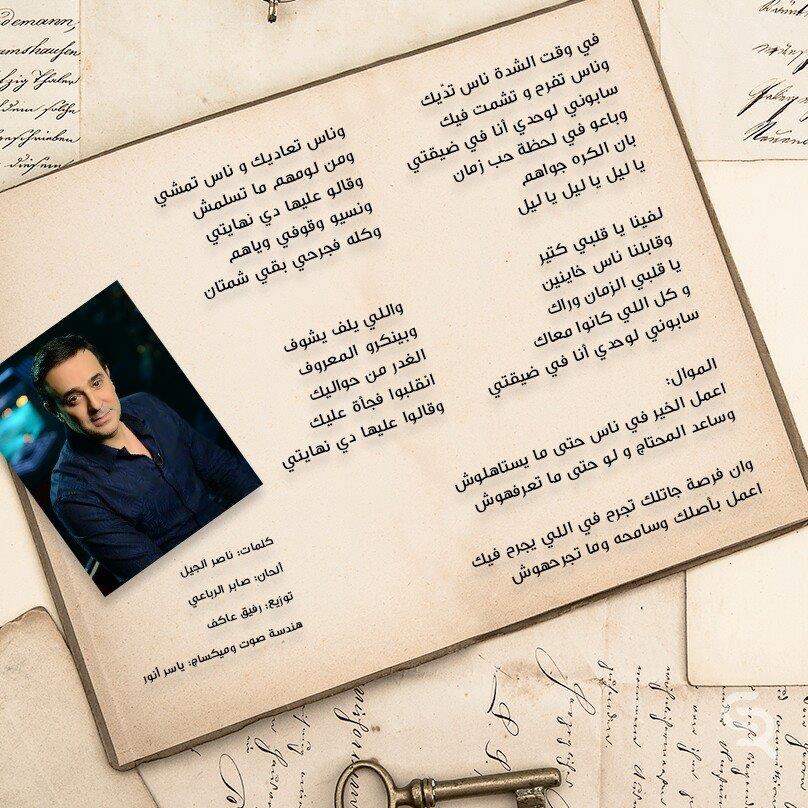 في وقت الشدة ناس تدّيك
وناس تفرح و تشمت فيك
سابوني لوحدي أنا في ضيقتي
وباعو في لحظة حب زمان
بان الكره جواهم
يا ليل يا ليل يا ليل
لفينا يا قلبي كتير
وقابلنا ناس خاينين
يا قلبي الزمان وراك
و كل اللي كانوا معاك
سابوني لوحدي أنا في ضيقتي
الموال:
اعمل الخير في ناس حتى ما يستاهلوش
وساعد المحتاج و لو حتى ما تعرفهوش
وان فرصة جاتلك تجرح في اللي يجرح فيك
اعمل بأصلك وسامحه وما تجرحهوش
وناس تعاديك و ناس تمشي
ومن لومهم ما تسلمش
وقالو عليها دي نهايتي
ونسيو وقوفي وياهم
وكله فجرحي بقي شمتان
واللي يلف يشوف
وبينكرو المعروف
الغدر من حواليك
انقلبوا فجأة عليك
وقالوا عليها دي نهايتي
كلمات: ناصر الجيل
ألحان: صابر الرباعي
توزيع: رفيق عاكف
هندسة صوت وميكساج: ياسر أنور